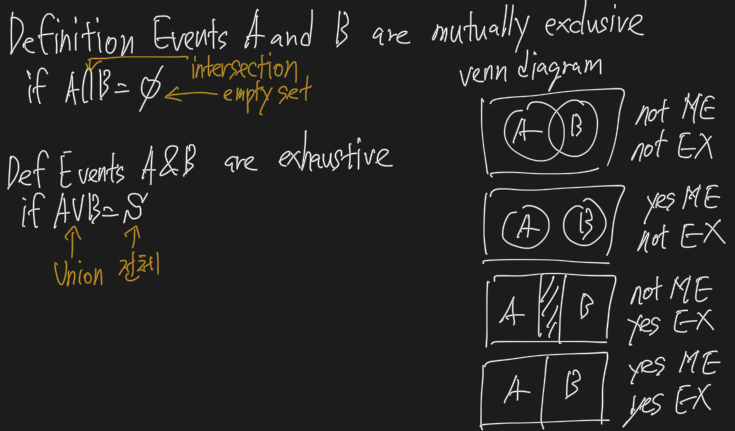 Definition Events A and B are mutually exclusive
if A∩B = ∅
intersection
empty set
Def Events A&B are exhaustive
if A∪B = S
Union 전체
venn diagram
A B
not ME
not EX
A B
yes ME
not EX
A B
not ME
yes EX
A B
yes ME
yes EX